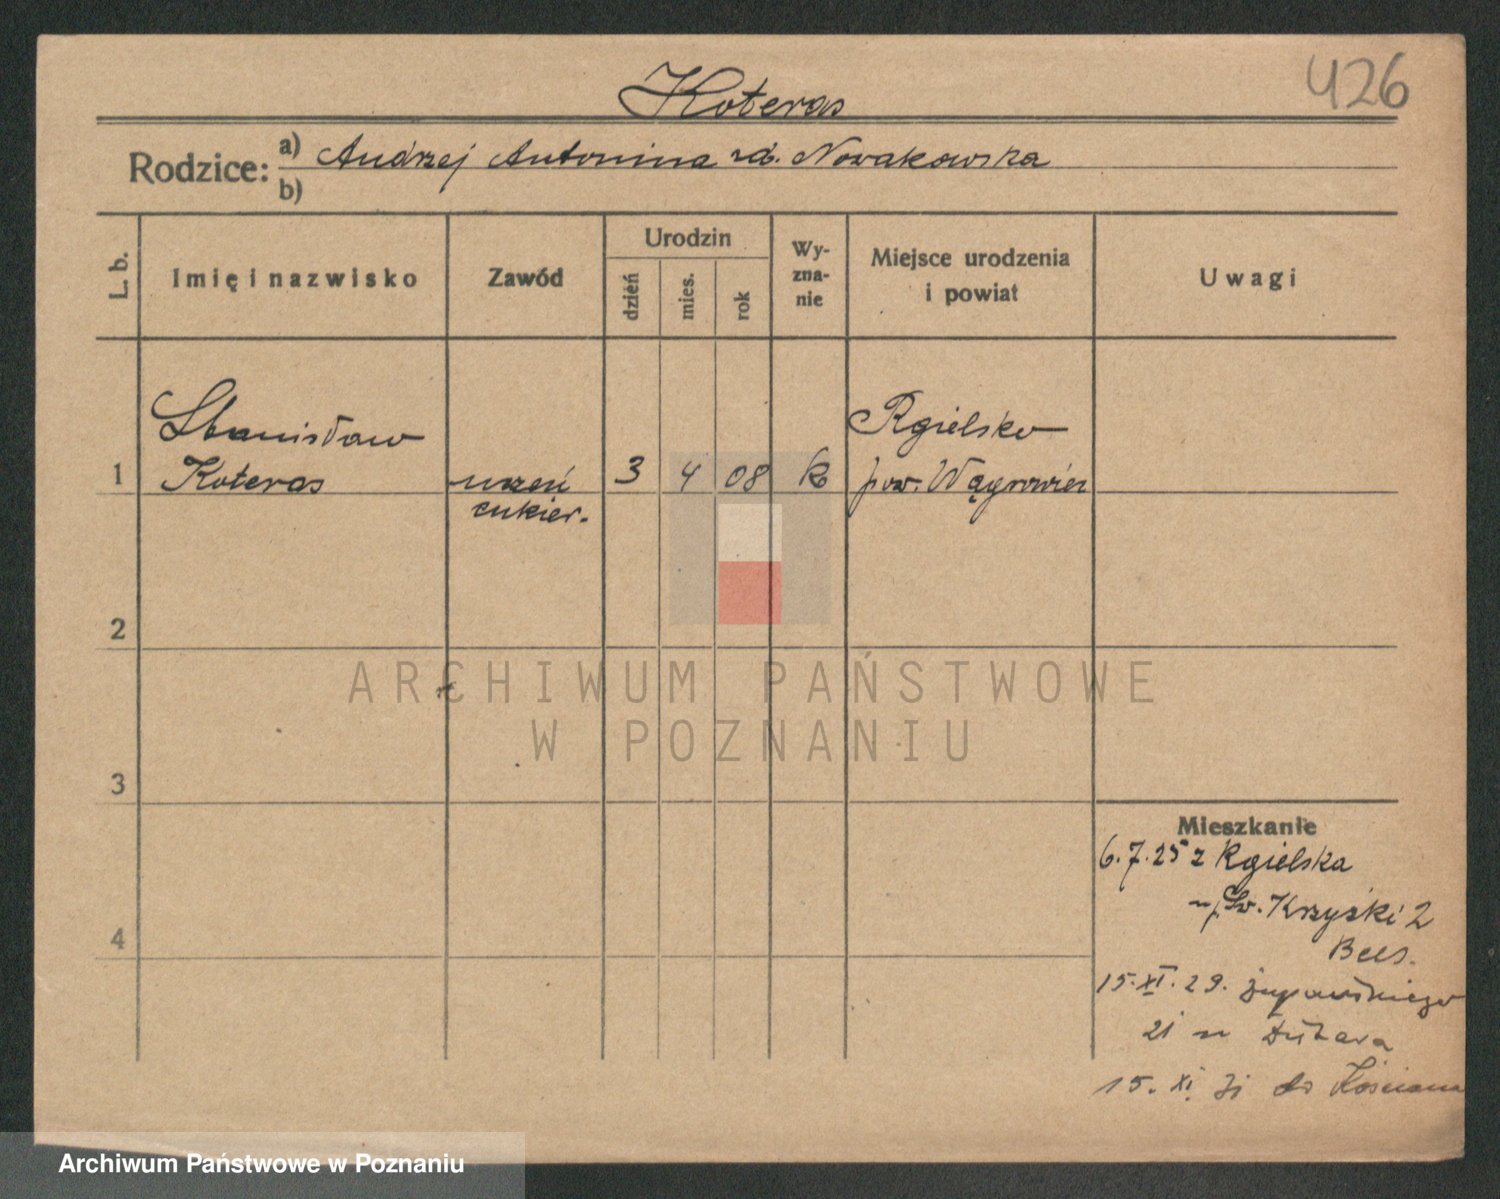 426
Koteras
Rodzice: a) Andrzej Antonina zd. Nowakowska
b)
L. b.
Imię i nazwisko
Zawód
Urodzin
dzień
mies.
rok
Wy-
zna-
nie
Miejsce urodzenia
i powiat
Uwagi
1
Stanisław
Koteras
uczeń
cukier.
3
4
08
k
Rgielsko
pow. Wągrowiec
2
3
4
Mieszkanie
6.7.25 z Rgielska
Św. Krzyski 2
15.XI.29. Żupańskiego
21
15. XI do Kościana
ARCHIWUM PAŃSTWOWE
W POZNANIU
Archiwum Państwowe w Poznaniu